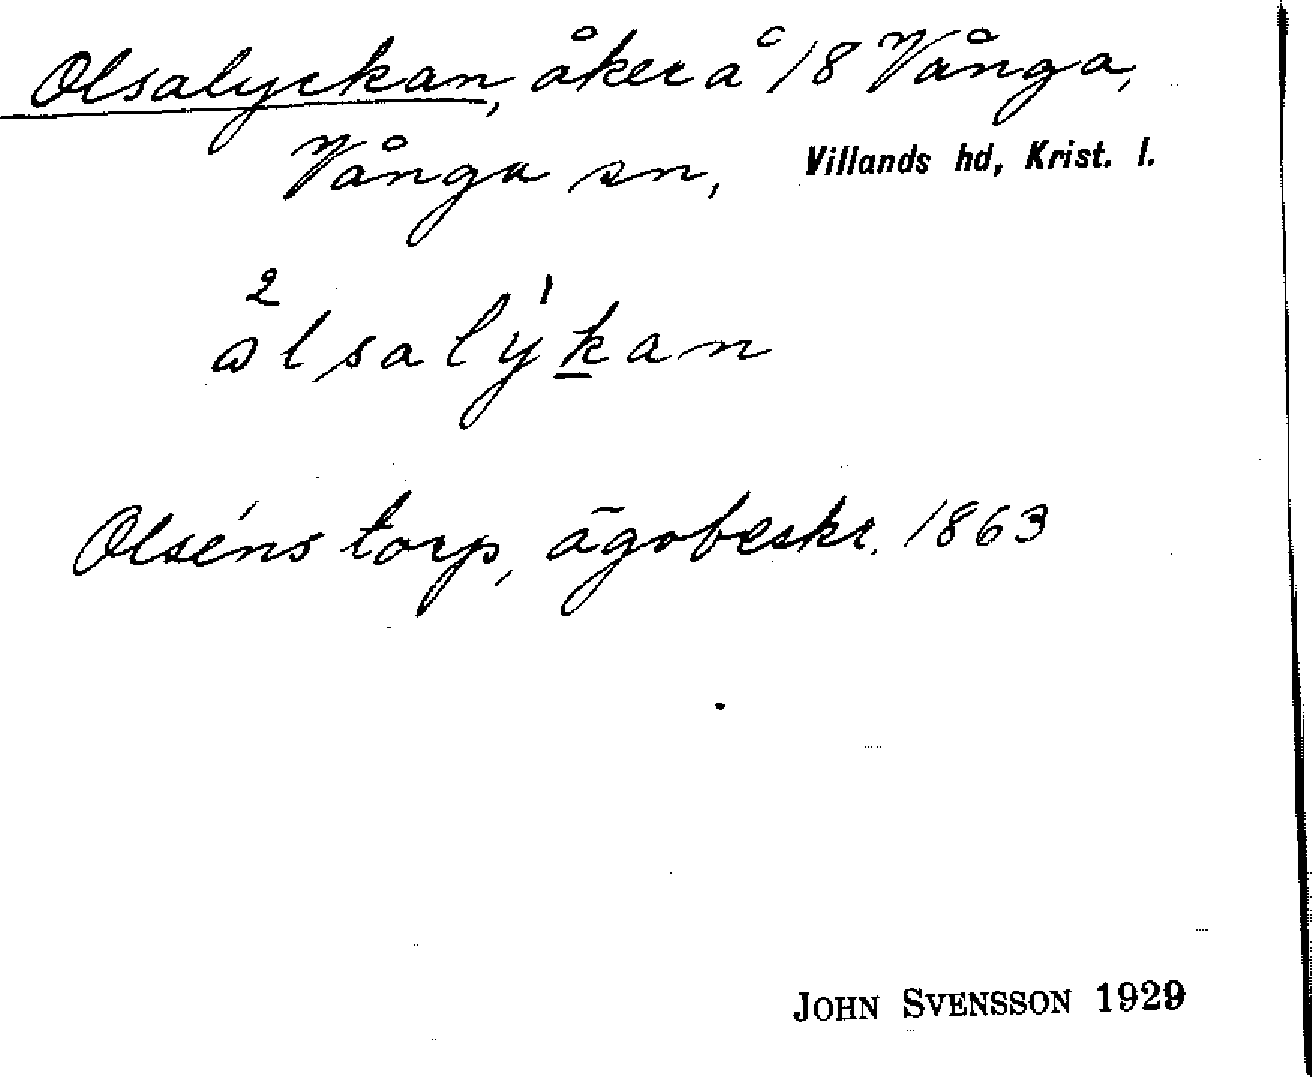 Olsalyckan, åker å 18 Vånga,
Vånga sn, Villands hd, Krist. l.
Olséns torp, ägobeskr. 1863
JOHN SVENSSON 1929